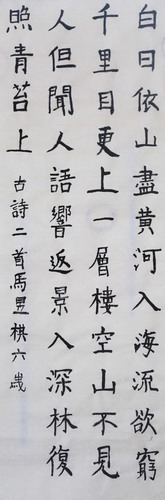 白日依山盡黃河入海流欲窮
千里目更上一層樓空山不見
人但聞人語響返景入深林復
照青苔上古詩二首馬昱棋六歲